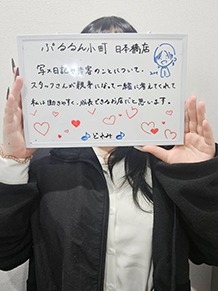 ぷるるん小町 日本橋店
写メ日記や接客のことについて、
スタッフさんが親身になって一緒に考えてくれて
私は働きやすく、成長できるお店だと思います。